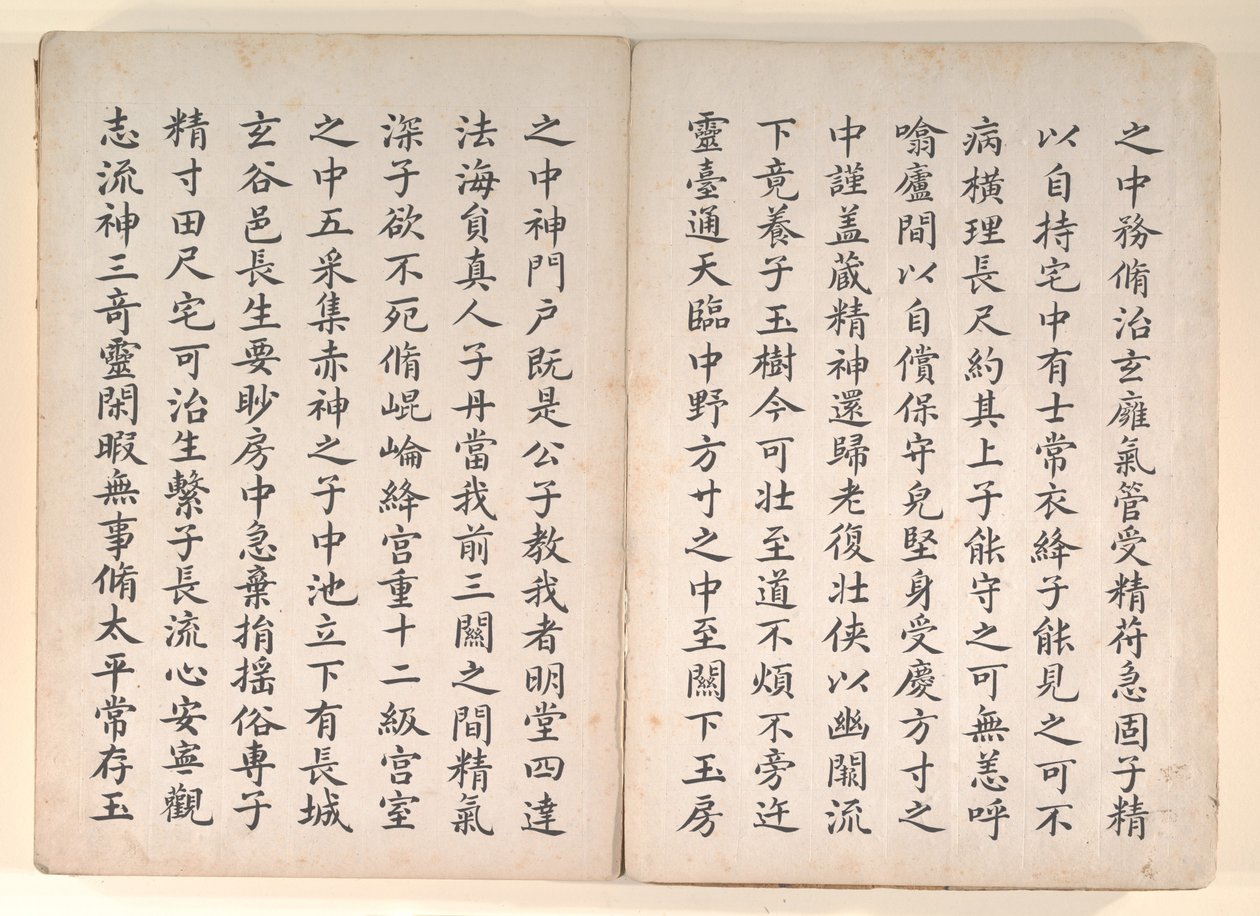 之中務脩治玄癰氣管受精苻急固子精
以自持宅中有士常衣絳子能見之可不
病橫理長尺約其上子能守之可無恙呼
噏廬間以自償保守皃堅身受慶方寸之
中謹盖藏精神還歸老復壯俠以幽闕流
下竟養子玉樹今可壯至道不煩不旁迕
靈臺通天臨中野方寸之中至關下玉房
之中神門戶既是公子教我者明堂四達
法海負真人子丹當我前三關之間精氣
深子欲不死脩崐崘絳宮重十二級宮室
之中五采集赤神之子中池立下有長城
玄谷邑長生要眇房中急棄捐搖俗專子
精寸田尺宅可治生繫子長流心安寧觀
志流神三竒靈閑暇無事脩太平常存玉